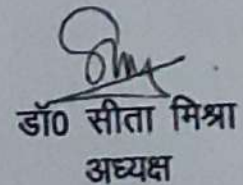 डॉ0 सीता मिश्रा
अध्यक्ष